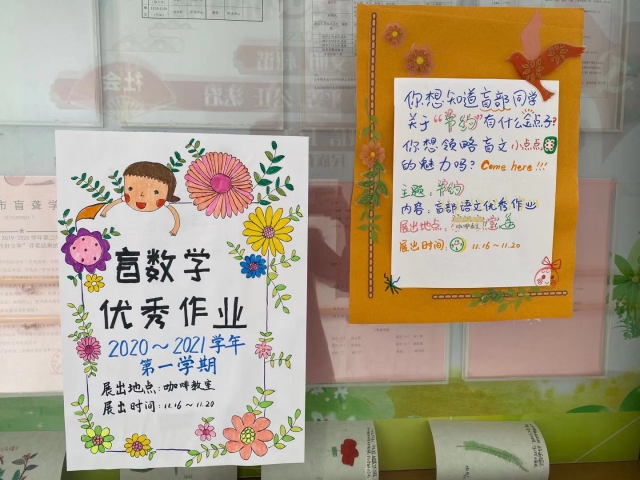 盲数学
优秀作业
2020～2021学年
第一学期
展出地点：咖啡教室
展出时间：11.16～11.20
你想知道盲部同学
关于“节约”有什么金点子？
你想领略盲文小点点
的魅力吗？Come here!!!
主题：节约
内容：盲部语文优秀作业
展出地点：咖啡教室
展出时间：11.16～11.20
市盲聋学
社会